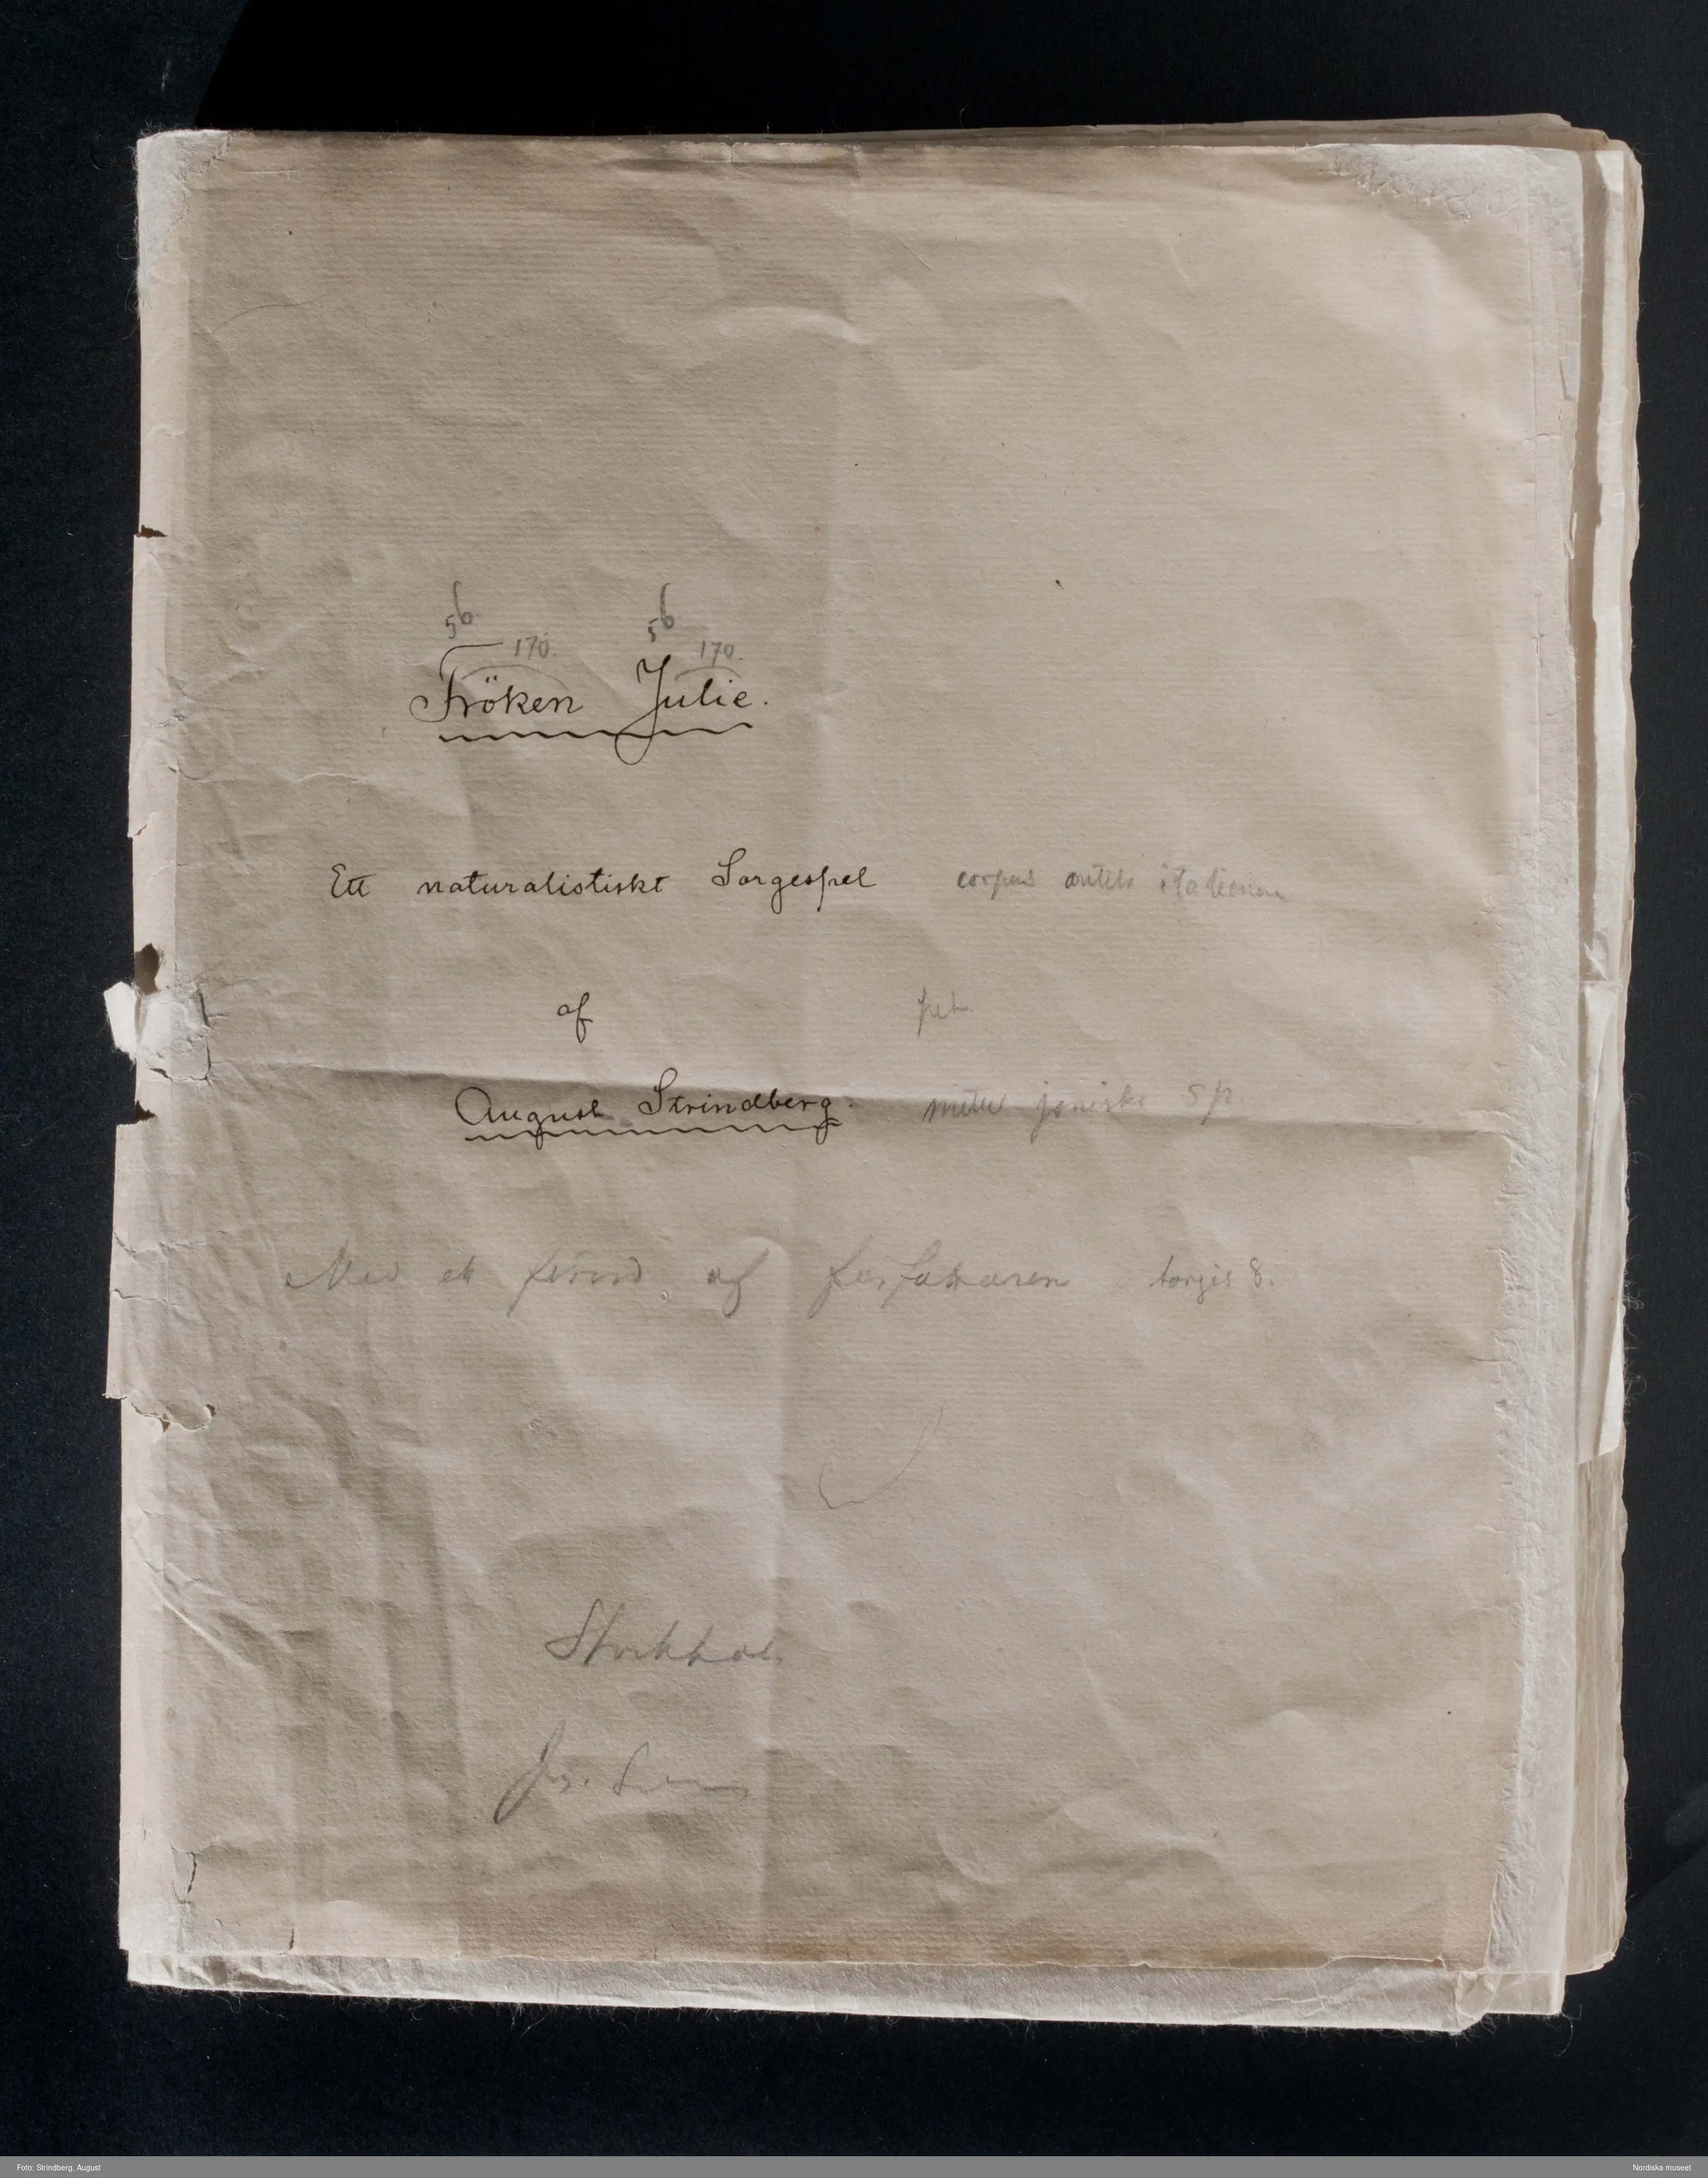 56 56
170. 170.
Fröken Julie.
Ett naturalistiskt Sorgespel corpus antik italienne
af pet.
August Strindberg. mitul joniska 5 p
Med ett förord af författaren borgis 8.
Stockhol
Jos.
Foto: Strindberg, August Nordiska museet